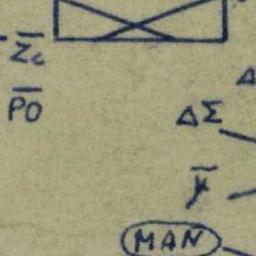 Z̅c̅
P̅O̅
Δ
ΔΣ
MAN